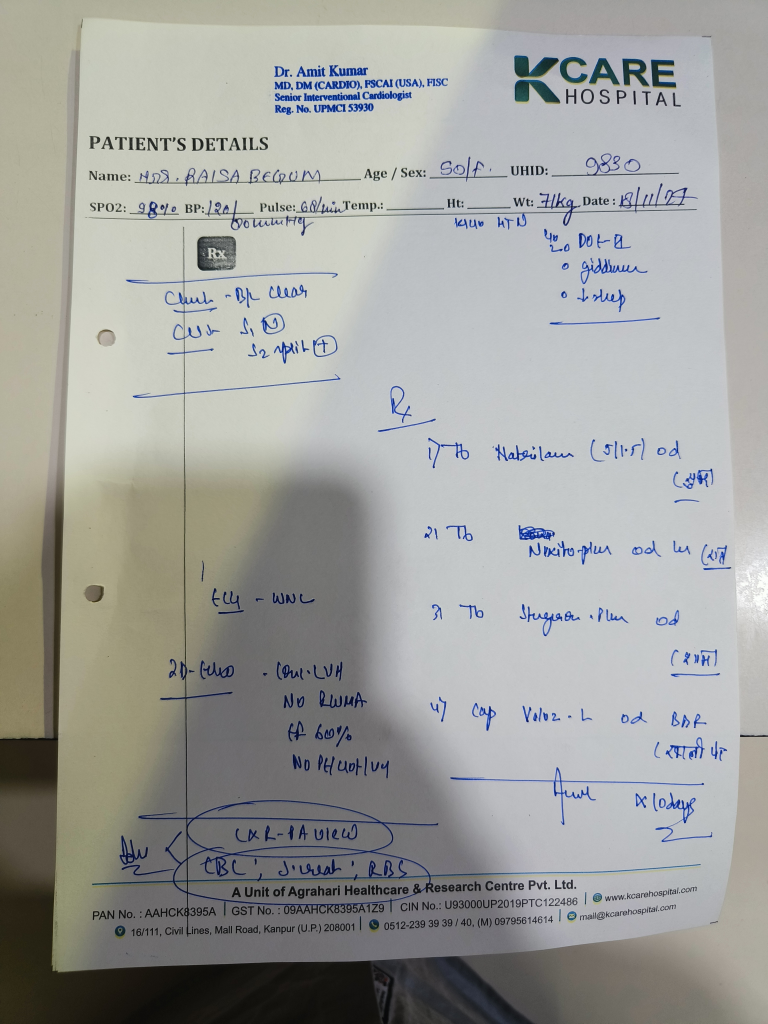 Dr. Amit Kumar
MD, DM (CARDIO), FSCAI (USA), FISC
Senior Interventional Cardiologist
Reg. No. UPMCI 53930
KCARE
HOSPITAL
PATIENT'S DETAILS
Name: Mrs. RAISA BEGUM Age / Sex: 50/F. UHID: 9830
SPO2: 98% BP: 120/ Pulse: 68/min Temp.: Ht: Wt: 71kg Date : 18/11/
mmHg
HTN
Rx
giddiness
↓ sleep
Chest - B/L clear
S1 N
S2 split +
Rx
1) Tb (5/1.5) od
2) Tb Nexito-plus od
3) Tb Stugeron-Plus od
4) Cap od BBF
ECG - WNL
2D-Echo - Conc. LVH
NO RWMA
EF 60%
x 10 days
Adv
CXR-PA VIEW
CBC, S.creat, RBS
A Unit of Agrahari Healthcare & Research Centre Pvt. Ltd.
PAN No. : AAHCK8395A | GST No. : 09AAHCK8395A1Z9 | CIN No.: U93000UP2019PTC122486 | www.kcarehospital.com
16/111, Civil Lines, Mall Road, Kanpur (U.P.) 208001 | 0512-239 39 39 / 40, (M) 09795614614 | mail@kcarehospital.com